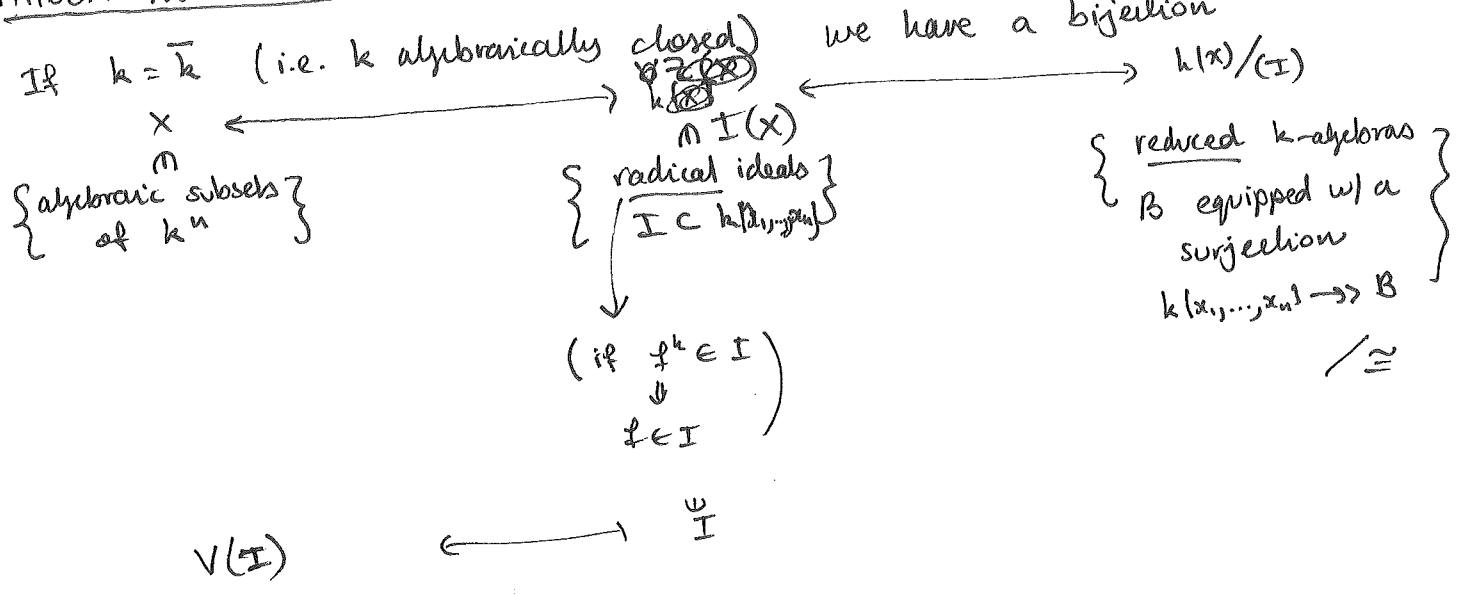 If k = k̄ (i.e. k algebraically closed) we have a bijection
X ⟷ I(X) ⟷ k[x]/(I)
∩ ∩
{algebraic subsets of kⁿ}
{radical ideals I ⊂ k[x₁,...,xₙ]}
{reduced k-algebras B equipped w/ a surjection k[x₁,...,xₙ] ↠ B} / ≅
(if fᵏ ∈ I
⇓
f ∈ I)
V(I) ⟵ I